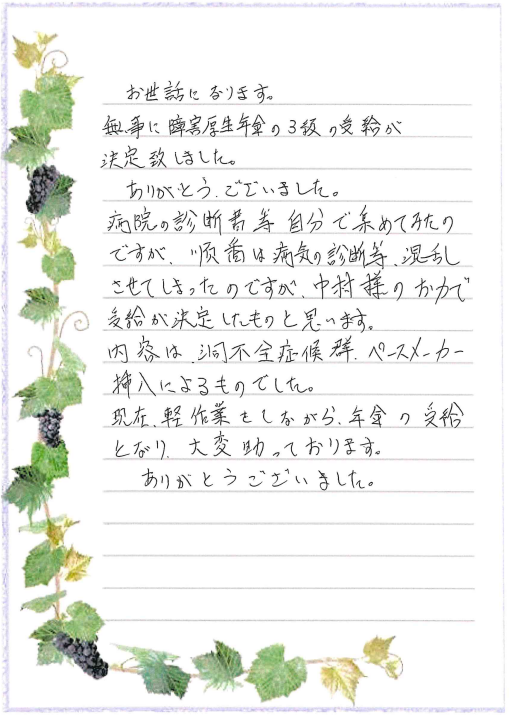 お世話になります。
無事に障害厚生年金の3級の受給が
決定致しました。
ありがとうございました。
病院の診断書等自分で集めてみたの
ですが、順番は病気の診断等、混乱し
させてしまったのですが、中村様のお力で
受給が決定したものと思います。
内容は、洞不全症候群、ペースメーカー
挿入によるものでした。
現在、軽作業をしながら、年金の受給
となり、大変助っております。
ありがとうございました。